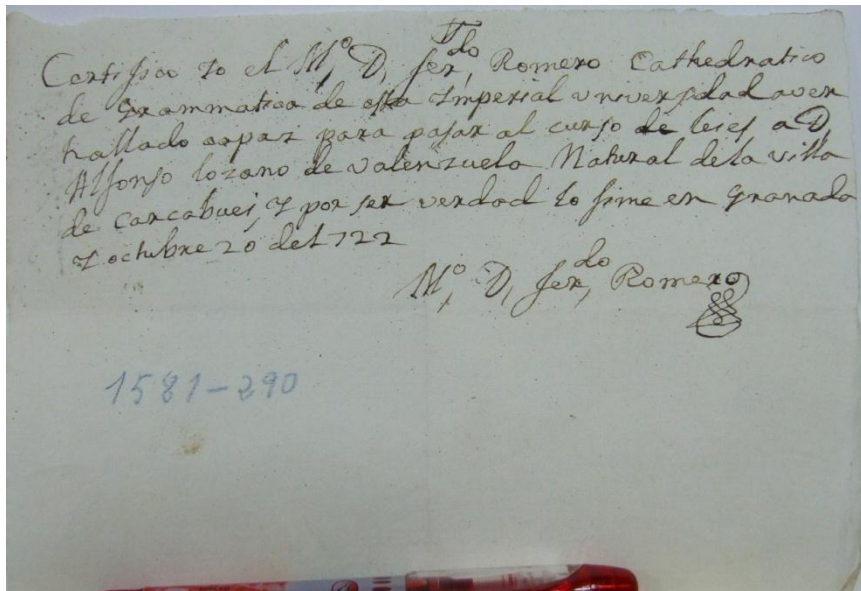 †
Certifico Yo el Mº, D, Ferdo, Romero Cathedratico
de Grammatica de esta Imperial Vniversidad aver
hallado capaz para pasar al curso de leies a D,
Alfonso lozano de valenzuela Natural de la villa
de Carcabuei, Y por ser verdad lo fime en Granada
Y octubre 20 de 1722
Mº, D, Ferdo, Romero
1581-290